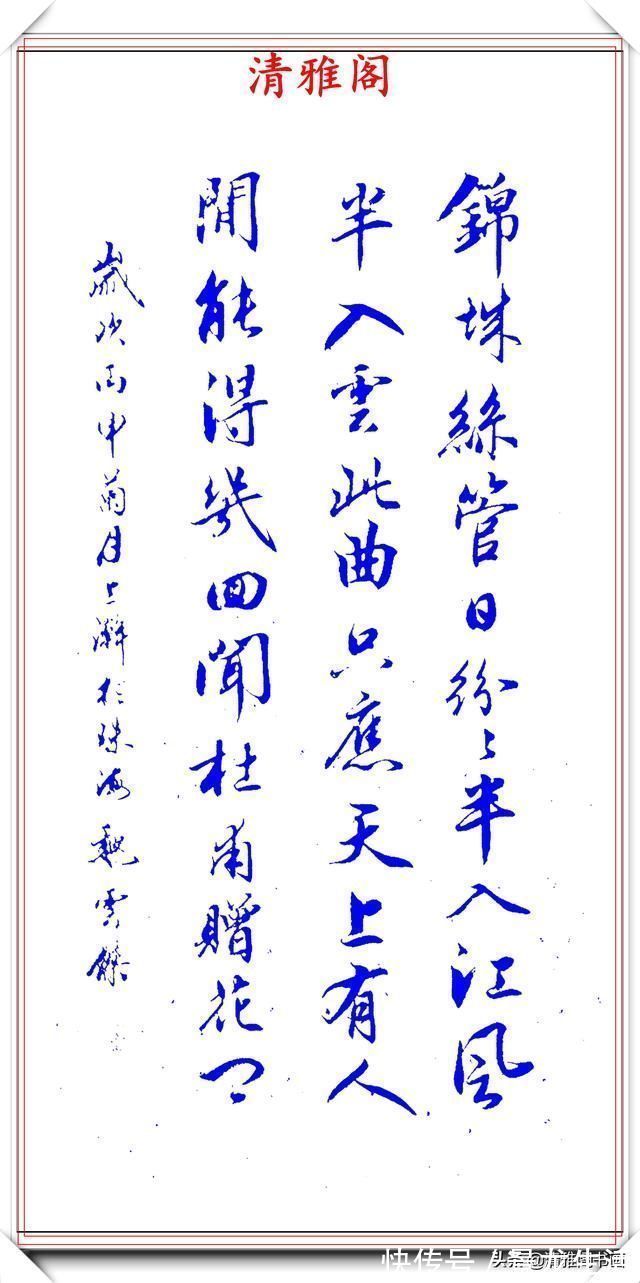 清雅阁
錦城絲管日紛〻半入江風
半入雲此曲只應天上有人
間能得幾回聞杜甫贈花卿
歲次丙申菊月上澣於珠海魏雲傑
快传号
头条@清雅阁书画